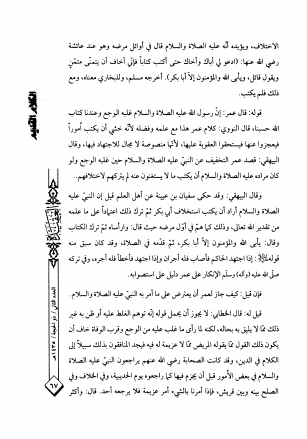 الاختلاف، ويؤيده أنه عليه الصلاة والسلام قال في أوائل مرضه وهو عند عائشة
رضي الله عنها: (ادعو لي أباك وأخاك حتى أكتب كتاباً فإني أخاف أن يتمنّى متمنّ
ويقول قائل، ويأبى الله والمؤمنون إلاّ أبا بكر). أخرجه مسلم، وللبخاري معناه، ومع
ذلك فلم يكتب.
قوله: قال عمر: إنّ رسول الله عليه الصلاة والسلام غلبه الوجع وعندنا كتاب
الله حسبنا، قال النووي: كلام عمر هذا مع علمه وفضله لأنّه خشي أن يكتب أموراً
فيعجزوا عنها فيستحقوا العقوبة عليها، لأنّها منصوصة لا مجال للاجتهاد فيها، وقال
البيهقي: قصد عمر التخفيف عن النبيّ عليه الصلاة والسلام حين غلبه الوجع ولو
كان مراده عليه الصلاة والسلام أن يكتب ما لا يستغنون عنه لم يتركهم لاختلافهم..
وقال البيهقي: وقد حكى سفيان بن عيينة عن أهل العلم قيل إن النبيّ عليه
الصلاة والسلام أراد أن يكتب استخلاف أبي بكر ثمّ ترك ذلك اعتماداً على ما علمه
من تقدير الله تعالى، وذلك كما همّ في أوّل مرضه حيث قال: وارأساه ثمّ ترك الكتاب
وقال: يأبى الله والمؤمنون إلاّ أبا بكر، ثمّ قدّمه في الصلاة، وقد كان سبق منه
قوله ﷺ: إذا اجتهد الحاكم فأصاب فله أجران وإذا اجتهد فأخطأ فله أجر، وفي تركه
صلى الله عليه (وآله) وسلم الإنكار على عمر دليل على استصوابه.
فإن قيل: كيف جاز لعمر أن يعترض على ما أمر به النبيّ عليه الصلاة والسلام.
قيل له: قال الخطابي: لا يجوز أن يحمل قوله إنّه توهم الغلط عليه أو ظن به غير
ذلك ممّا لا يليق به بحاله، لكنه لما رأى ما غلب عليه من الوجع وقرب الوفاة خاف أن
يكون ذلك القول ممّا يقوله المريض ممّا لا عزيمة له فيه فيجد المنافقون بذلك سبيلاً إلى
الكلام في الدين، وقد كانت الصحابة رضي الله عنهم يراجعون النبيّ عليه الصلاة
والسلام في بعض الأمور قبل أن يجزم فيها كما راجعوه يوم الحديبية، وفي كتاب
الصلح بينه وبين قريش، فإذا أمرنا بالشيء أمر عزيمة فلا يرجعه أحد. قال: وأكثر
العدد الثاني / ذو الحجة / ١٤٣٥هـ
٦٧